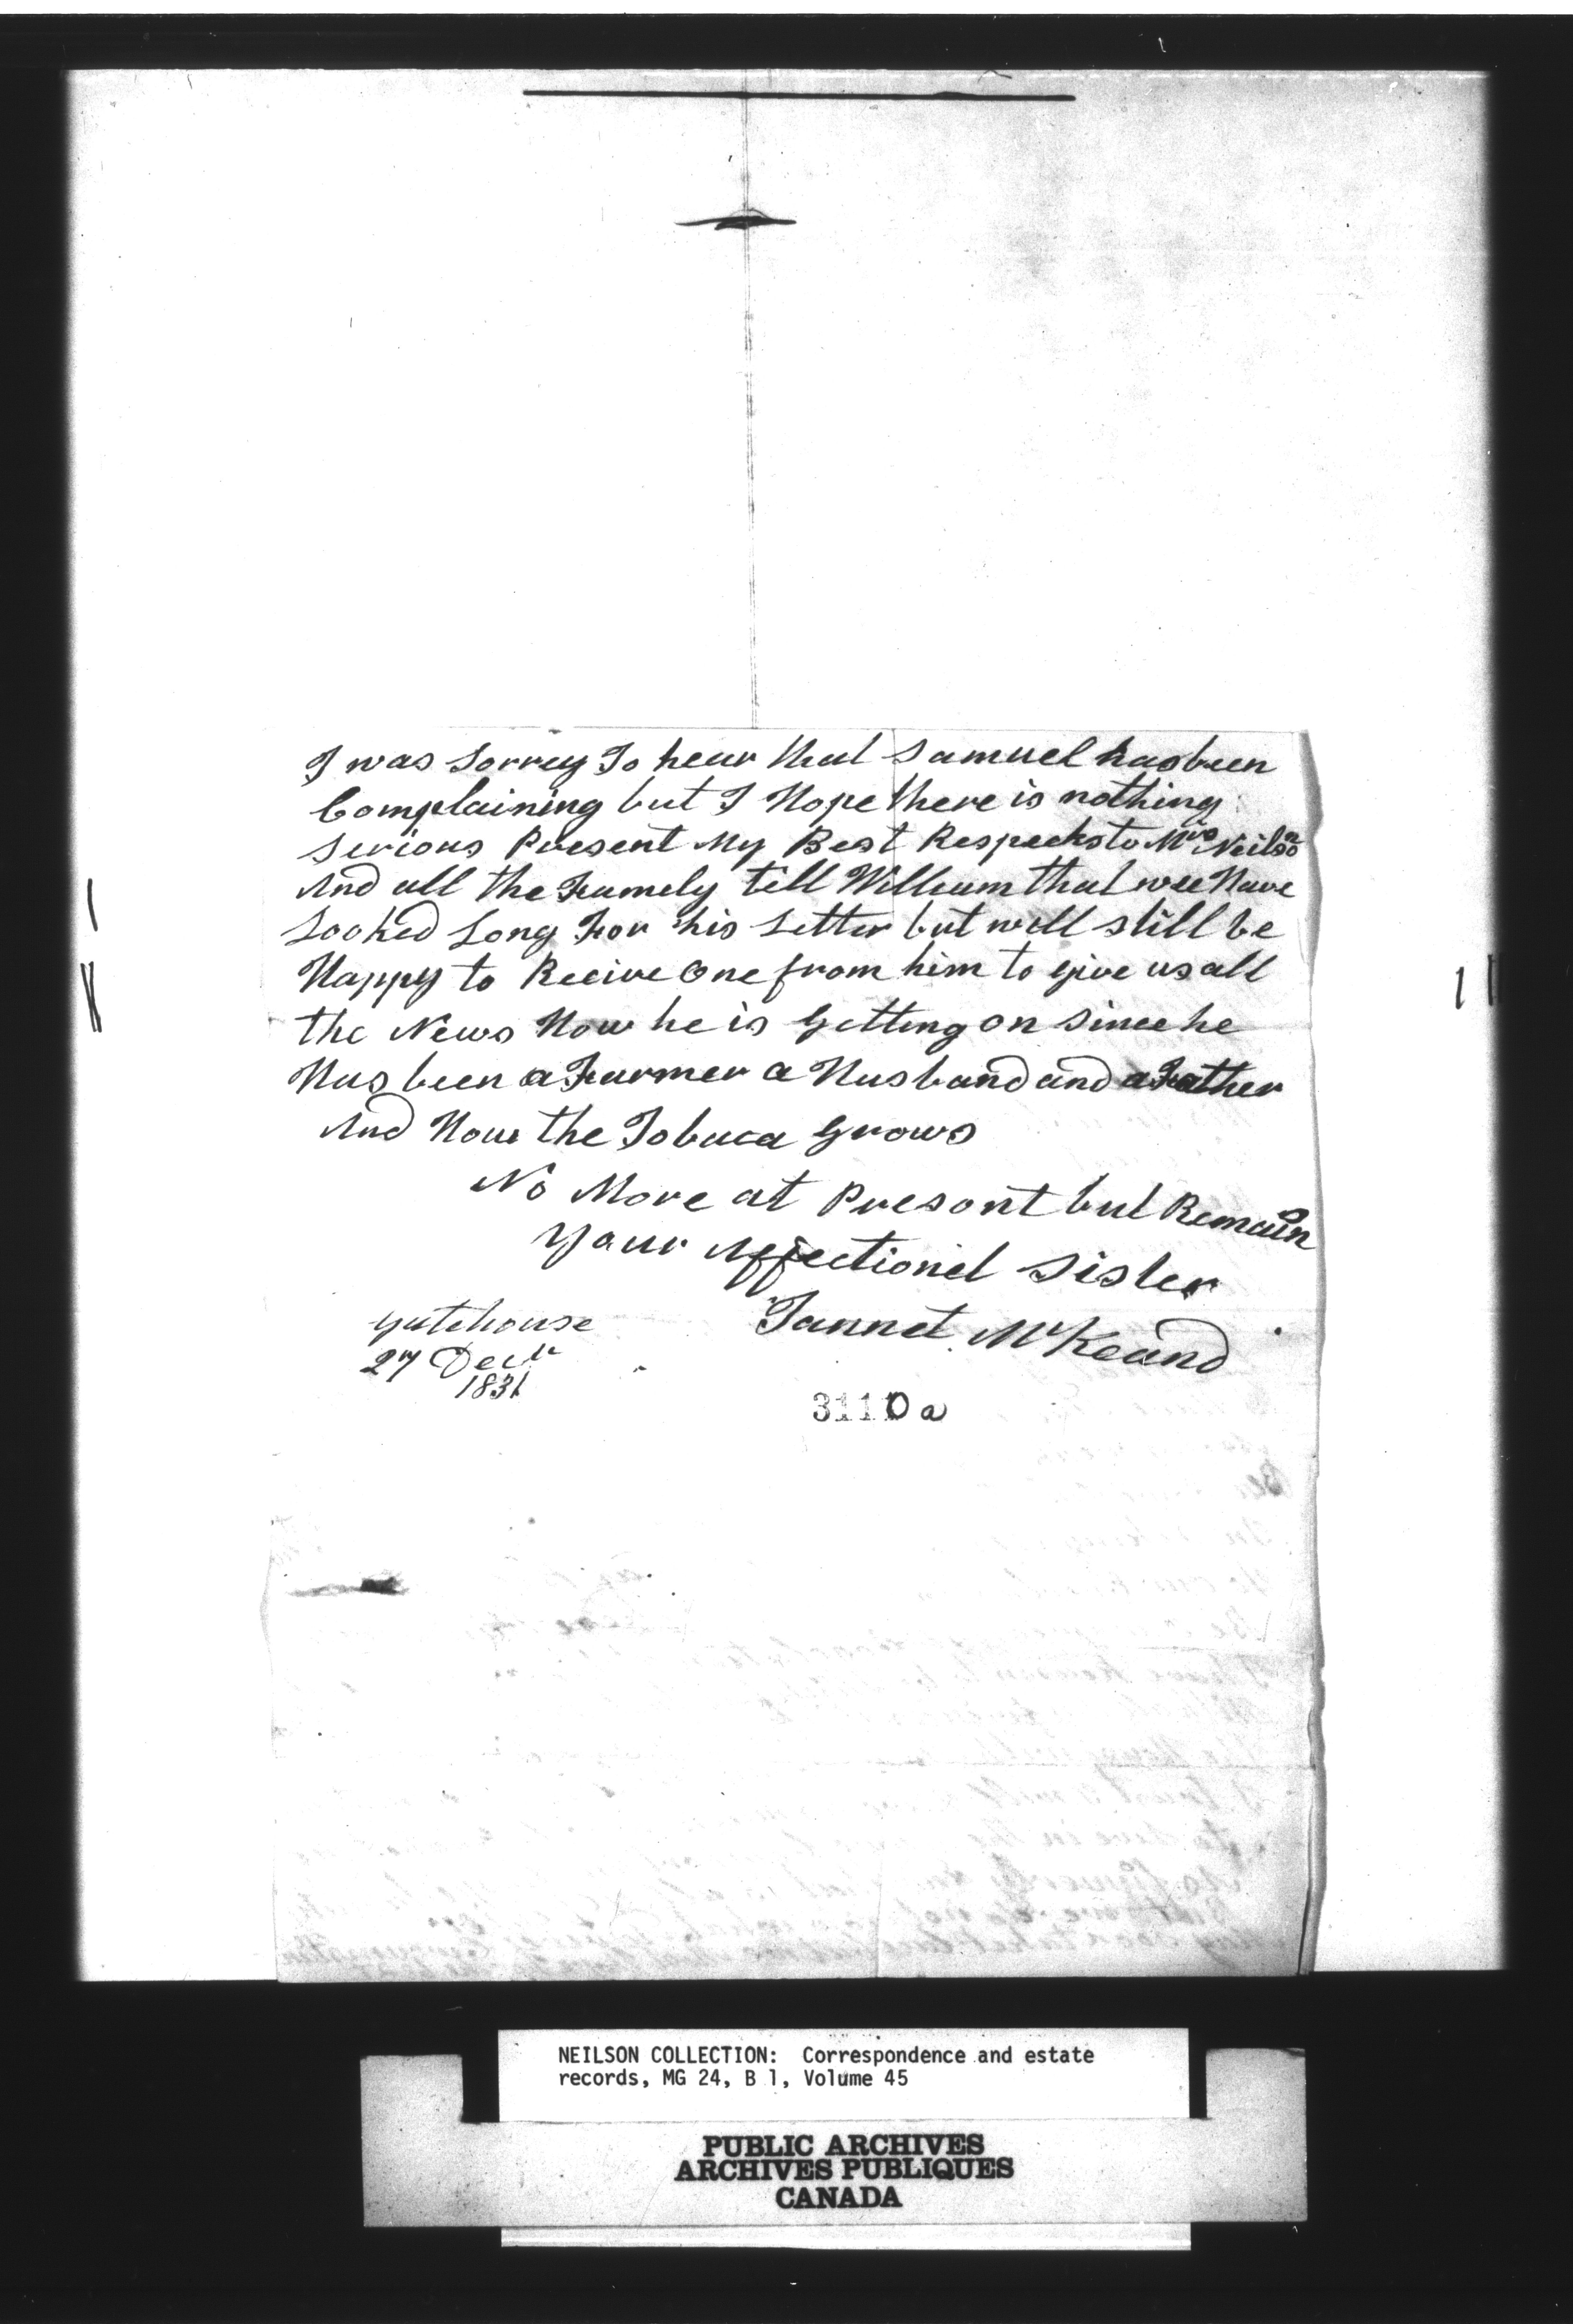 I was Sorrey To hear that Samuel has been
Complaining but I Hope there is nothing
Serious Present My Best Respecks to Mrs Neilson
And all the Famely till William that wee Have
Looked Long For his Letter but will still be
Happy to Recive One from him to give us all
the News How he is Getting on Since he
Has been a Farmer a Husband and a Father
And How the Tobaca Grows
No More at Present but Remain
Your Affectionet Sister
Jannet McKeand
Gatehouse
27 Decr
1831
3110 a
NEILSON COLLECTION: Correspondence and estate
records, MG 24, B 1, Volume 45
PUBLIC ARCHIVES
ARCHIVES PUBLIQUES
CANADA